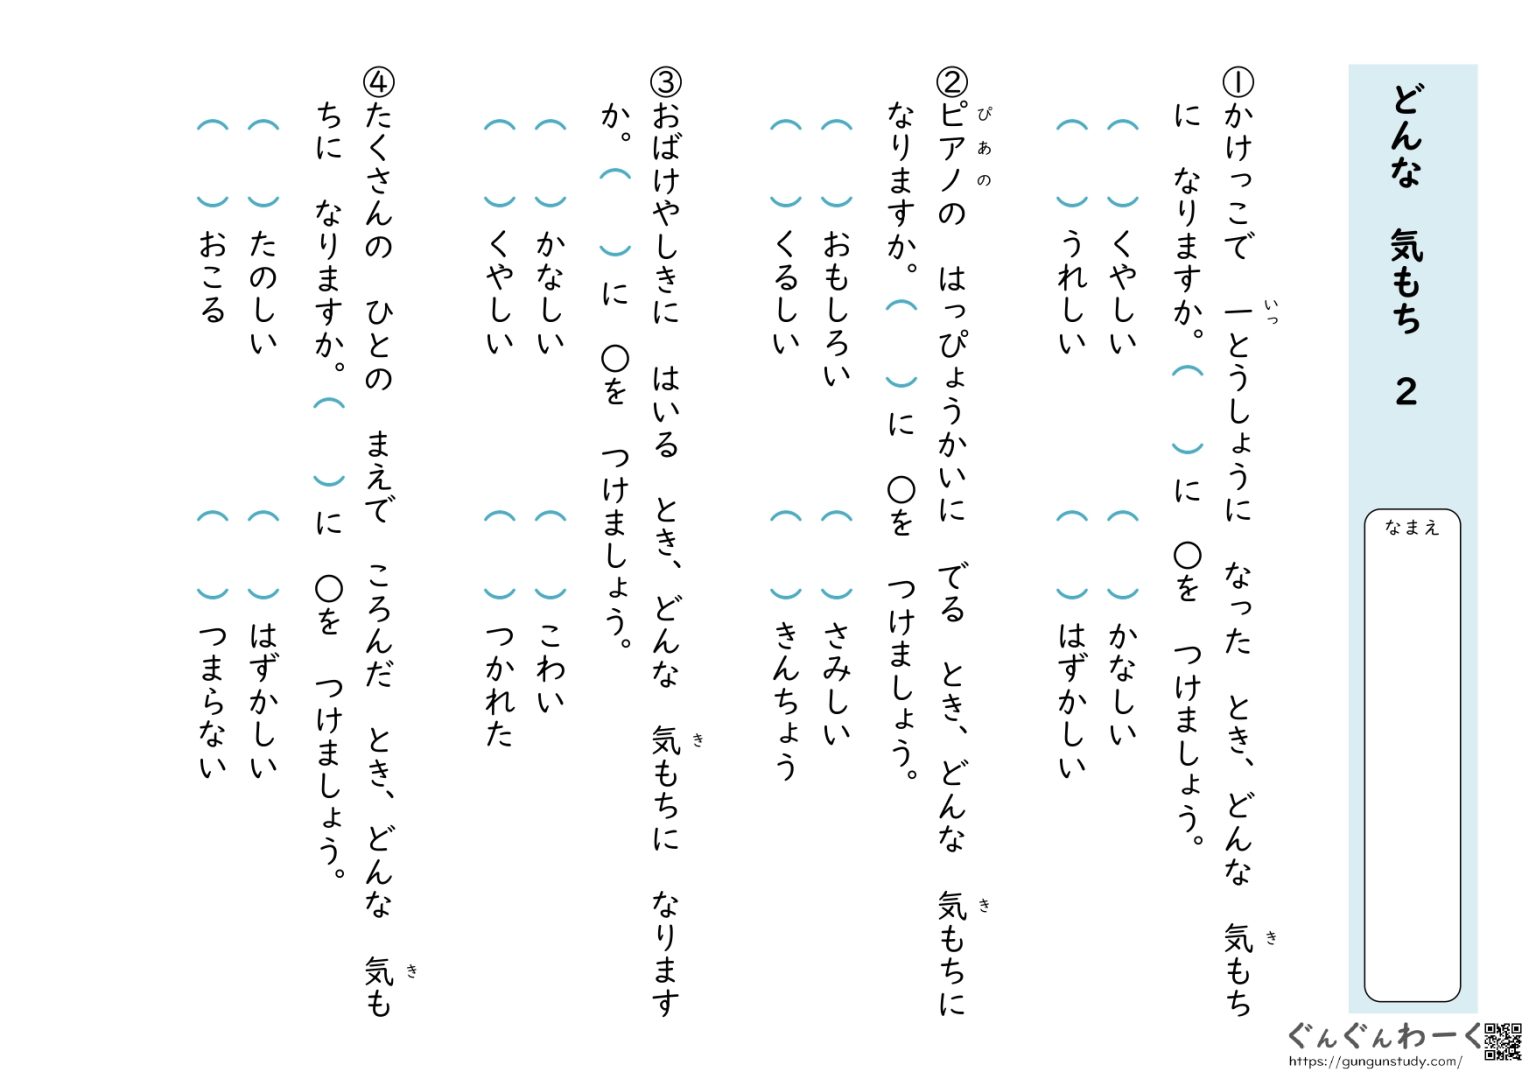 どんな　気もち　２
なまえ
①かけっこで　一とうしょうに　なった　とき、どんな　気もち
いっ
き
に　なりますか。（　　）に　〇を　つけましょう。
（　　）くやしい　（　　）かなしい
（　　）うれしい　（　　）はずかしい
②ピアノの　はっぴょうかいに　でる　とき、どんな　気もちに
ぴあの
き
なりますか。（　　）に　〇を　つけましょう。
（　　）おもしろい　（　　）さみしい
（　　）くるしい　（　　）きんちょう
③おばけやしきに　はいる　とき、どんな　気もちに　なります
き
か。（　　）に　〇を　つけましょう。
（　　）かなしい　（　　）こわい
（　　）くやしい　（　　）つかれた
④たくさんの　ひとの　まえで　ころんだ　とき、どんな　気も
き
ちに　なりますか。（　　）に　〇を　つけましょう。
（　　）たのしい　（　　）はずかしい
（　　）おこる　（　　）つまらない
ぐんぐんわーく
https://gungunstudy.com/